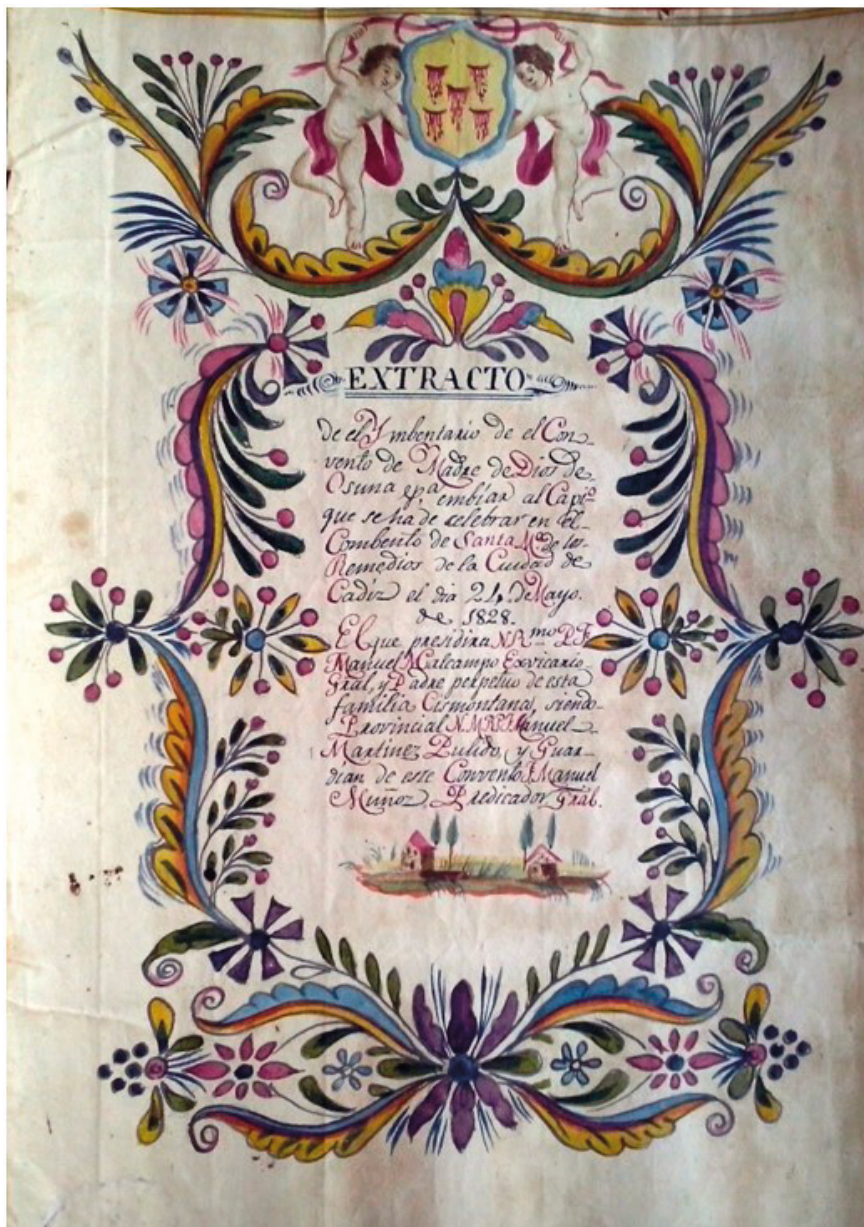 EXTRACTO
de el Ymbentario de el Con-
vento de Madre de Dios de
Osuna pa. embiar al Capio.
que se ha de celebrar en el
Combento de Santa Ma. de los
Remedios de la Ciudad de
Cadiz el dia 24, de Mayo.
de 1828.
El que presidira N. Rmo. P. Fr.
Manuel Malcampo Exvicario
Gral, y Padre perpetuo de esta
familia Cismontana, siendo
Provincial N. M. R. P. Manuel
Martinez Pulido, y Guar-
dian de este Convento F. Manuel
Muñoz Predicador Gral.